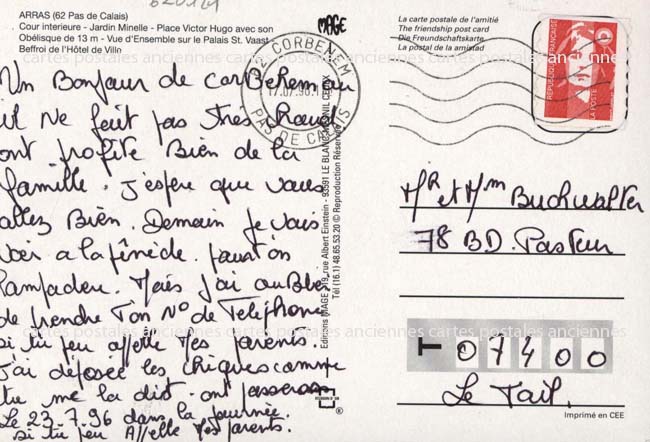 ARRAS (62 Pas de Calais)
Cour interieure - Jardin Minelle - Place Victor Hugo avec son
Obélisque de 13 m - Vue d'Ensemble sur le Palais St. Vaast -
Beffroi de l'Hôtel de Ville
MAGE
La carte postale de l'amitié
The friendship post card
Die Freundschaftskarte
La postal de la amistad
62 CORBEHEM
PAS DE CALAIS
RÉPUBLIQUE FRANÇAISE
LA POSTE
cartes postales anciennes cartes postales anciennes cartes postales anciennes
Un Bonjour de corbehem ou
il ne fait pas très chaud
ont profite Bien de la
famille. j'espere que vous
allez Bien. Demain je vais
voir a la
Mais j'ai oublier
de prendre Ton No de Telephone
si tu peu appelle mes parents.
j'ai déposée les cheques comme
tu me la dit. ont
Le 23.7.96 dans la journée.
si tu peu Appelle mes parents.
Editions MAGE - 19, rue Albert Einstein - 93591 LE BLANC MESNIL CEDEX
Tél (16.1) 48.65.53.20 © Reproduction Réservée
Mr et Mm Buchwalter
78 BD. Pasteur
T 07400
Le Teil.
cartes postales anciennes cartes postales anciennes cartes postales anciennes
Imprimé en CEE